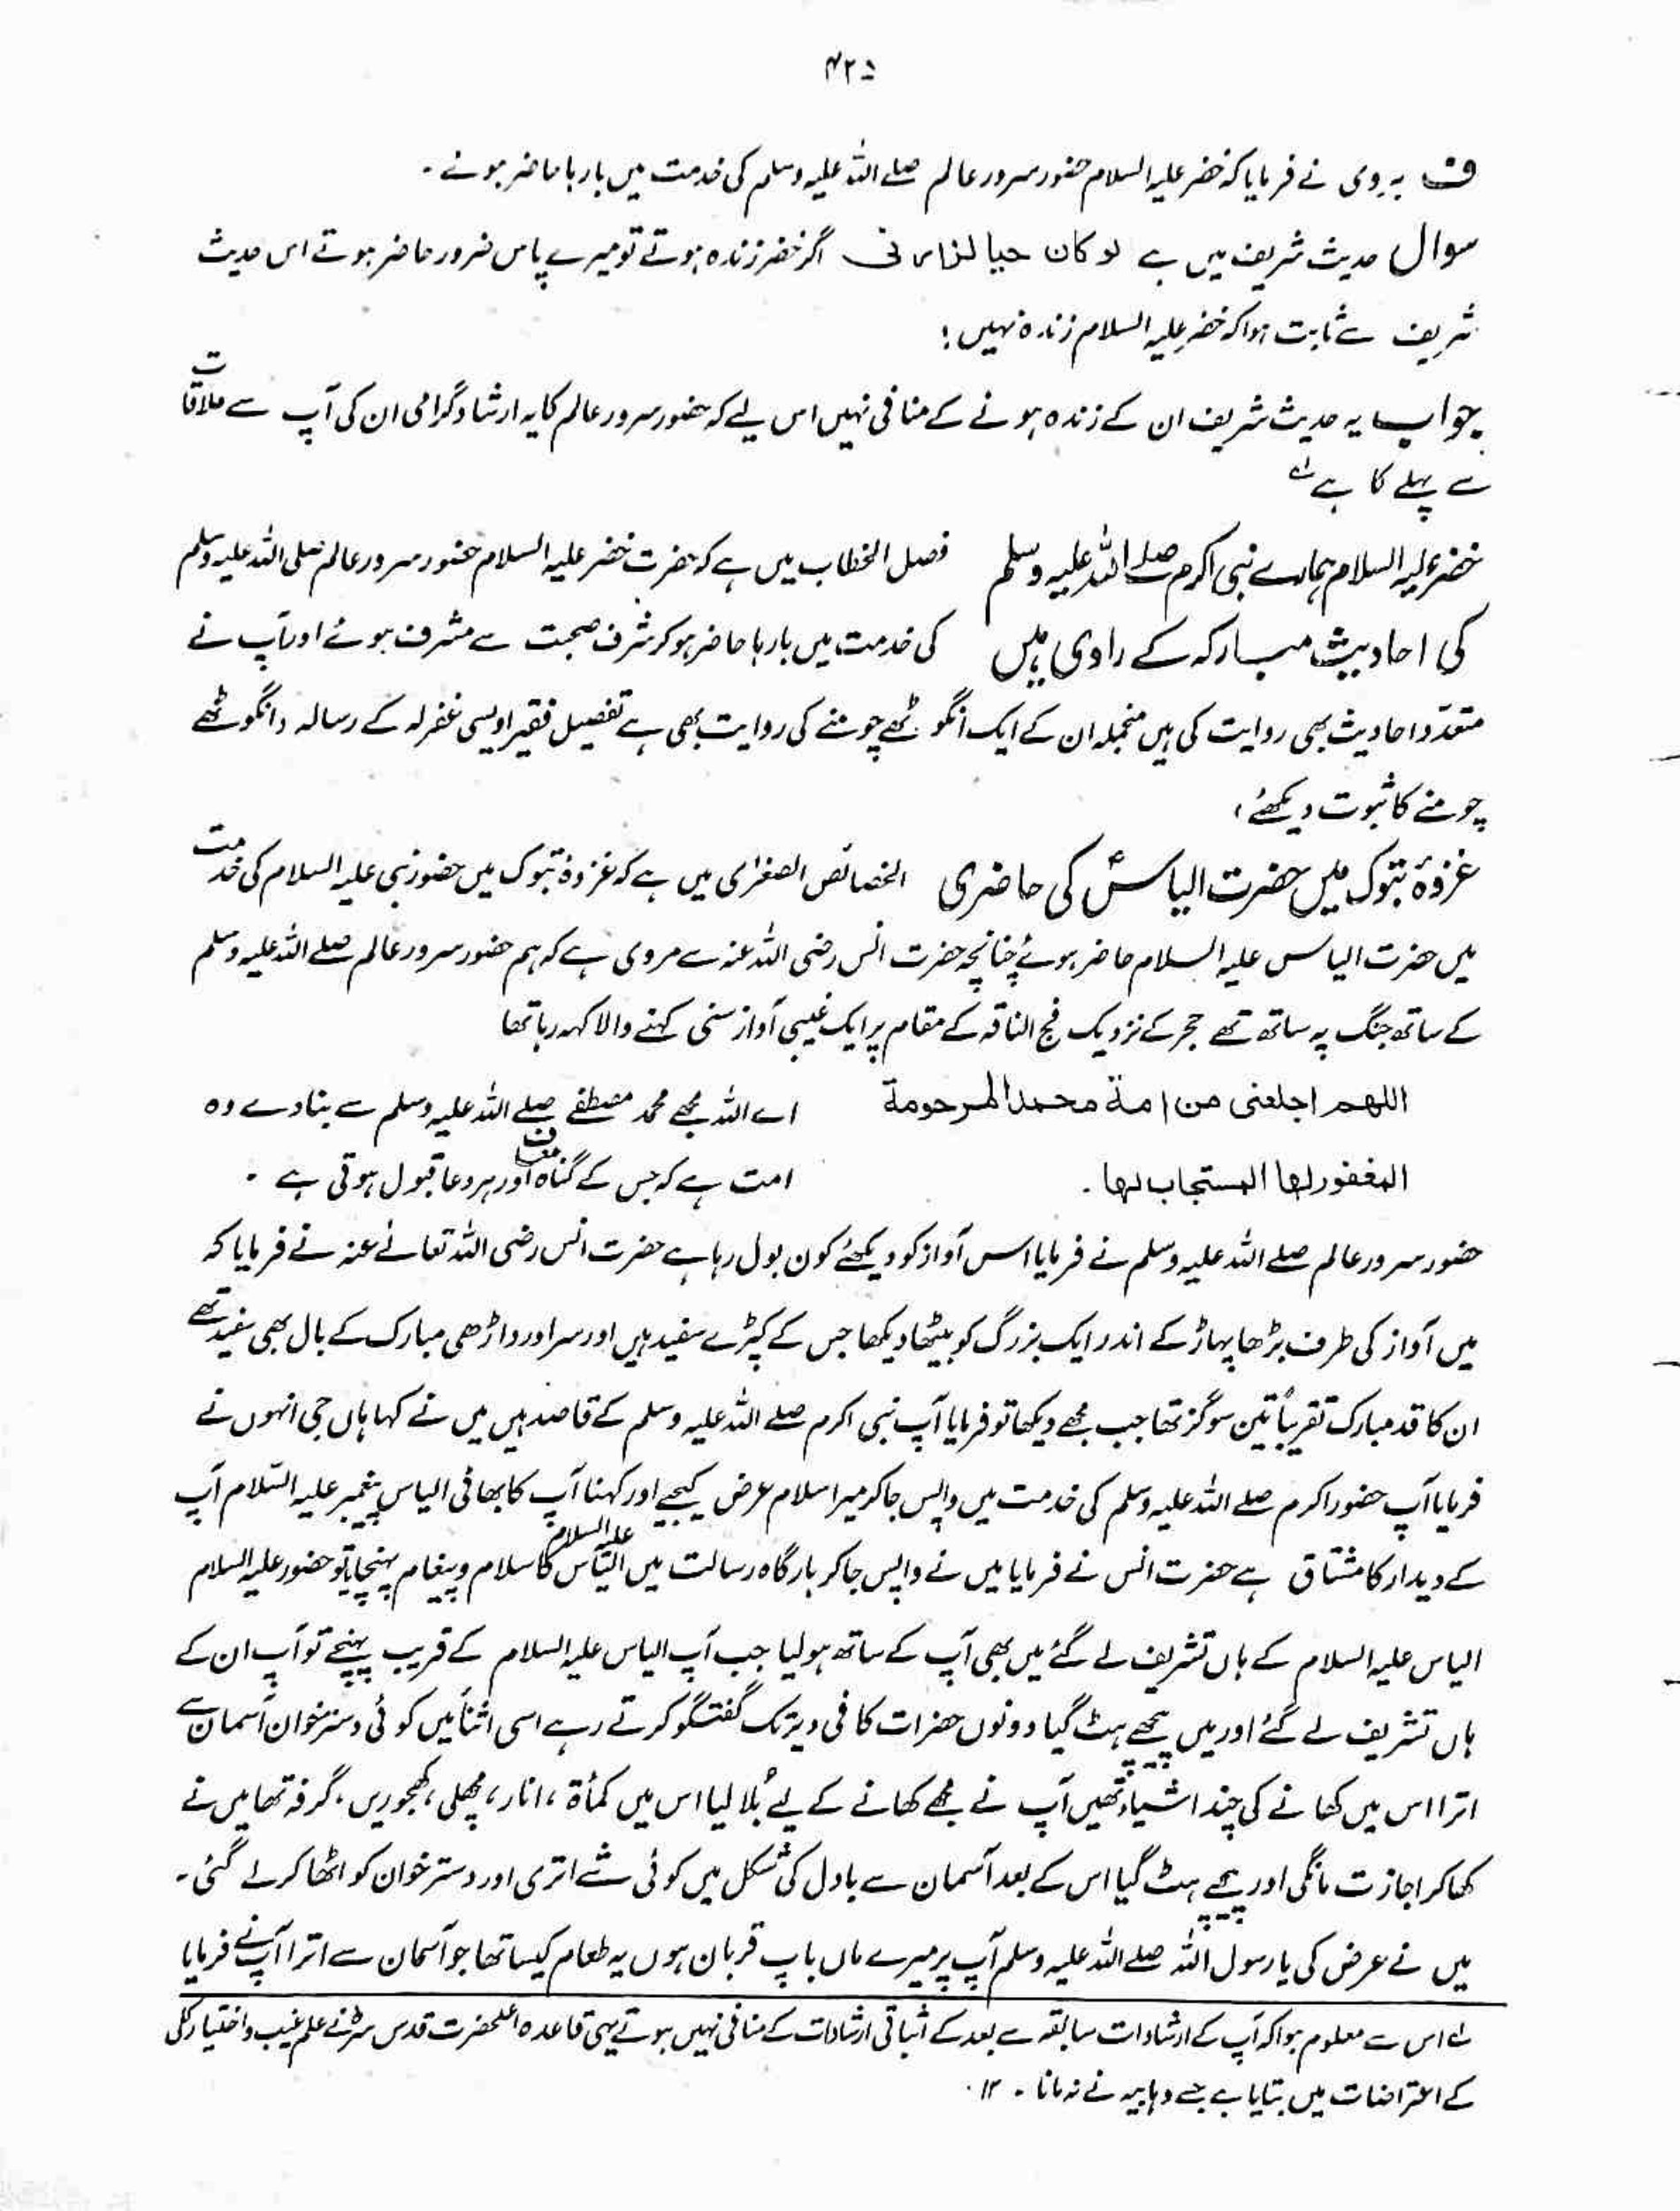 ۴۲۵
ف ہروی نے فرمایا کہ خضر علیہ السلام حضور سرور عالم صلے اللہ علیہ وسلم کی خدمت میں بارہا حاضر ہوئے۔
سوال حدیث شریف میں ہے لو کان حیا لزارنی اگر خضر زندہ ہوتے تو میرے پاس ضرور حاضر ہوتے اس حدیث
شریف سے ثابت ہوا کہ خضر علیہ السلام زندہ نہیں؛
جواب یہ حدیث شریف ان کے زندہ ہونے کے منافی نہیں اس لیے کہ حضور سرور عالم کا یہ ارشاد گرامی ان کی آپ سے ملاقات
سے پہلے کا ہے لہ
خضر علیہ السلام ہمارے نبی اکرم صلے اللہ علیہ وسلم فصل الخطاب میں ہے کہ حضرت خضر علیہ السلام حضور سرور عالم صلی اللہ علیہ وسلم
کی احادیث مبارکہ کے راوی ہیں کی خدمت میں بارہا حاضر ہو کر شرف صحبت سے مشرف ہوئے اور آپ نے
متعدّد احادیث بھی روایت کی ہیں منجملہ ان کے ایک انگوٹھے چومنے کی روایت بھی ہے تفصیل فقیر اویسی غفرلہ کے رسالہ دانگوٹھے
چومنے کا ثبوت دیکھئے،
غزوۂ تبوک میں حضرت الیاسؑ کی حاضری الخصائص الصغرٰی میں ہے کہ غزوۂ تبوک میں حضور نبی علیہ السلام کی خدمت
میں حضرت الیاس علیہ السلام حاضر ہوئے چنانچہ حضرت انس رضی اللہ عنہ سے مروی ہے کہ ہم حضور سرور عالم صلے اللہ علیہ وسلم
کے ساتھ جنگ پہ ساتھ تھے حجر کے نزدیک فج الناقہ کے مقام پر ایک غیبی آواز سنی کہنے والا کہہ رہا تھا
اللهم اجلعنی من امة محمد المرحومة اے اللہ مجھے محمد مصطفےٰ صلے اللہ علیہ وسلم سے بنا دے وہ
المغفور لها المستجاب لها. امت ہے کہ جس کے گناہ معاف اور ہر دعا قبول ہوتی ہے ۔
حضور سرور عالم صلے اللہ علیہ وسلم نے فرمایا اس آواز کو دیکھئے کون بول رہا ہے حضرت انس رضی اللہ تعالےٰ عنہ نے فرمایا کہ
میں آواز کی طرف بڑھا پہاڑ کے اندر ایک بزرگ کو بیٹھا دیکھا جس کے کپڑے سفید ہیں اور سر اور داڑھی مبارک کے بال بھی سفید تھے
ان کا قد مبارک تقریباً تین سو گز تھا جب مجھے دیکھا تو فرمایا آپ نبی اکرم صلے اللہ علیہ وسلم کے قاصد ہیں میں نے کہا ہاں جی انہوں نے
فرمایا آپ حضور اکرم صلے اللہ علیہ وسلم کی خدمت میں واپس جا کر میرا سلام عرض کیجیے اور کہنا آپ کا بھائی الیاس پیغمبر علیہ السّلام آپ
کے دیدار کا مشتاق ہے حضرت انس نے فرمایا میں نے واپس جا کر بارگاہ رسالت میں الیاس علیہ السلام کا سلام و پیغام پہنچایا تو حضور علیہ السلام
الیاس علیہ السلام کے ہاں تشریف لے گئے میں بھی آپ کے ساتھ ہو لیا جب آپ الیاس علیہ السلام کے قریب پہنچے تو آپ ان کے
ہاں تشریف لے گئے اور میں پیچھے ہٹ گیا دونوں حضرات کافی دیر تک گفتگو کرتے رہے اسی اثنا میں کوئی دسترخوان آسمان سے
اترا اس میں کھانے کی چند اشیاء تھیں آپ نے مجھے کھانے کے لیے بُلا لیا اس میں کمأة، انار، مچھلی، کھجوریں، گرفہ تھا میں نے
کھا کر اجازت مانگی اور پیچھے ہٹ گیا اس کے بعد آسمان سے بادل کی شکل میں کوئی شے اتری اور دسترخوان کو اٹھا کر لے گئی۔
میں نے عرض کی یا رسول اللہ صلے اللہ علیہ وسلم آپ پر میرے ماں باپ قربان ہوں یہ طعام کیسا تھا جو آسمان سے اترا آپ نے فرمایا
لے اس سے معلوم ہوا کہ آپ کے ارشادات سابقہ سے بعد کے اثباتی ارشادات کے منافی نہیں ہوتے یہی قاعدہ اعلحضرت قدس سرہٗ نے علم غیب و اختیار کلی
کے اعتراضات میں بتایا ہے جسے وہابیہ نے نہ مانا۔ ۱۲.